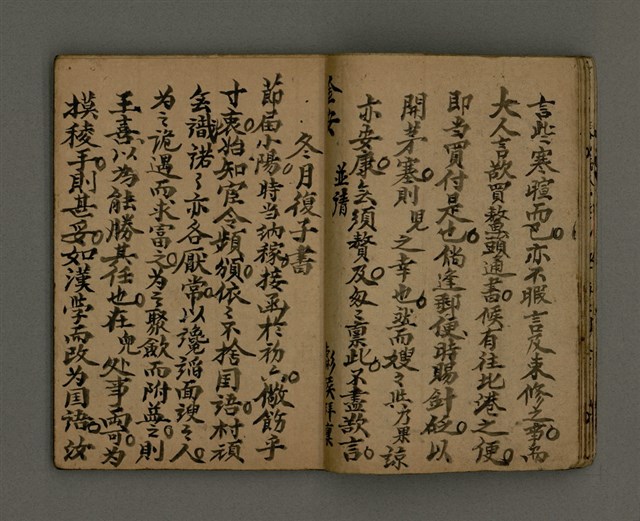 言些寒暄而已亦不暇言及束修之事而
大人言欲買鰲頭通書候有往北港之便
即当買付是也倘逢郵便時賜針砭以
開茅塞則児之幸也然而嫂々些乃果諒
亦安康無須贅及匆々稟此不盡欵言
金安
並請
冬月復子書
節届小陽時当納稼接函於初六儆飭乎
寸衷始知宦令頻頒依々不捨国語村頑
無識諾々亦各厭常以讒謟面諛之人
為之詭遇而求富之為之聚斂而附益之則
王喜以為能勝其任也在児処事両可為
摸稜手則甚妥如漢学而改为国語汝